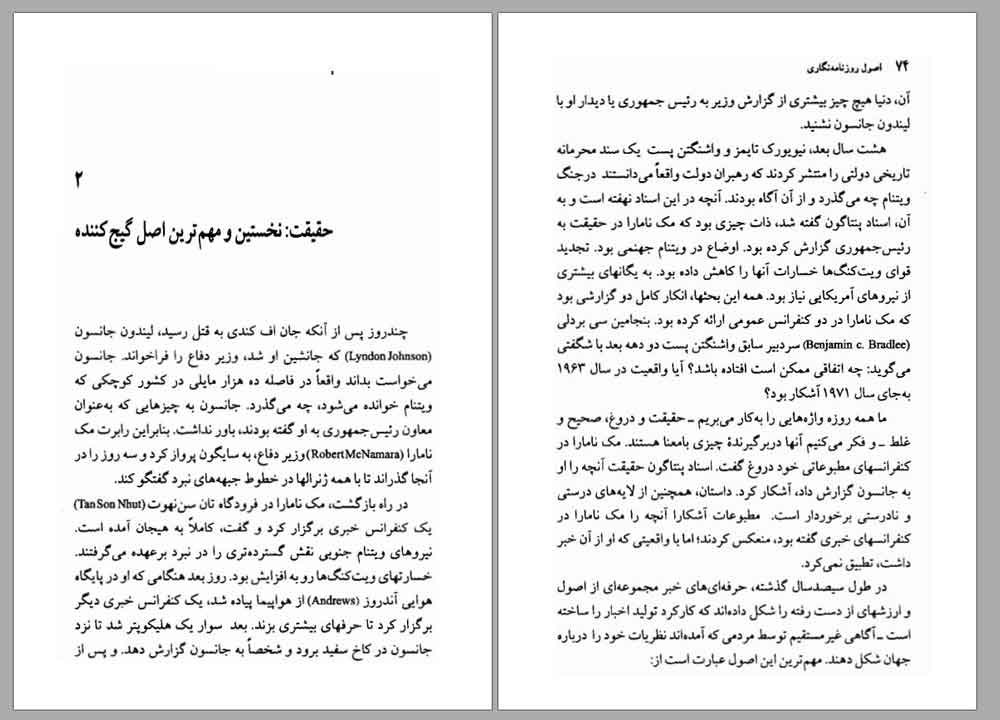 ۲
حقیقت: نخستین و مهم‌ترین اصل گیج‌کننده
چندروز پس از آنکه جان اف کندی به قتل رسید، لیندون جانسون
(Lyndon Johnson) که جانشین او شد، وزیر دفاع را فراخواند. جانسون
می‌خواست بداند واقعاً در فاصله ده هزار مایلی در کشور کوچکی که
ویتنام خوانده می‌شود، چه می‌گذرد. جانسون به چیزهایی که به‌عنوان
معاون رئیس‌جمهوری به او گفته بودند، باور نداشت. بنابراین رابرت مک
نامارا (Robert McNamara) وزیر دفاع، به سایگون پرواز کرد و سه روز را در
آنجا گذراند تا با همه ژنرالها در خطوط جبهه‌های نبرد گفتگو کند.
در راه بازگشت، مک نامارا در فرودگاه تان سن‌نهوت (Tan Son Nhut)
یک کنفرانس خبری برگزار کرد و گفت، کاملاً به هیجان آمده است.
نیروهای ویتنام جنوبی نقش گسترده‌تری را در نبرد برعهده می‌گرفتند.
خسارتهای ویت‌کنگ‌ها رو به افزایش بود. روز بعد هنگامی که او در پایگاه
هوایی آندروز (Andrews) از هواپیما پیاده شد، یک کنفرانس خبری دیگر
برگزار کرد تا حرفهای بیشتری بزند. بعد سوار یک هلیکوپتر شد تا نزد
جانسون در کاخ سفید برود و شخصاً به جانسون گزارش دهد. و پس از
۷۴ اصول روزنامه‌نگاری
آن، دنیا هیچ چیز بیشتری از گزارش وزیر به رئیس جمهوری یا دیدار او با
لیندون جانسون نشنید.
هشت سال بعد، نیویورک تایمز و واشنگتن پست یک سند محرمانه
تاریخی دولتی را منتشر کردند که رهبران دولت واقعاً می‌دانستند درجنگ
ویتنام چه می‌گذرد و از آن آگاه بودند. آنچه در این اسناد نهفته است و به
آن، اسناد پنتاگون گفته شد، ذات چیزی بود که مک نامارا در حقیقت به
رئیس‌جمهوری گزارش کرده بود. اوضاع در ویتنام جهنمی بود. تجدید
قوای ویت‌کنگ‌ها خسارات آنها را کاهش داده بود. به یگانهای بیشتری
از نیروهای آمریکایی نیاز بود. همه این بحثها، انکار کامل دو گزارشی بود
که مک نامارا در دو کنفرانس عمومی ارائه کرده بود. بنجامین سی بردلی
(Benjamin c. Bradlee) سردبیر سابق واشنگتن پست دو دهه بعد با شگفتی
می‌گوید: چه اتفاقی ممکن است افتاده باشد؟ آیا واقعیت در سال ۱۹۶۳
به‌جای سال ۱۹۷۱ آشکار بود؟
ما همه روزه واژه‌هایی را به‌کار می‌بریم ـ حقیقت و دروغ، صحیح و
غلط ـ و فکر می‌کنیم آنها دربرگیرندهٔ چیزی بامعنا هستند. مک نامارا در
کنفرانسهای مطبوعاتی خود دروغ گفت. اسناد پنتاگون حقیقت آنچه را او
به جانسون گزارش داد، آشکار کرد. داستان، همچنین از لایه‌های درستی
و نادرستی برخوردار است. مطبوعات آشکارا آنچه را مک نامارا در
کنفرانسهای خبری گفته بود، منعکس کردند؛ اما با واقعیتی که او از آن خبر
داشت، تطبیق نمی‌کرد.
در طول سیصدسال گذشته، حرفه‌ای‌های خبر مجموعه‌ای از اصول
و ارزشهای از دست رفته را شکل داده‌اند که کارکرد تولید اخبار را ساخته
است ـ آگاهی غیرمستقیم توسط مردمی که آمده‌اند نظریات خود را درباره
جهان شکل دهند. مهم‌ترین این اصول عبارت است از: